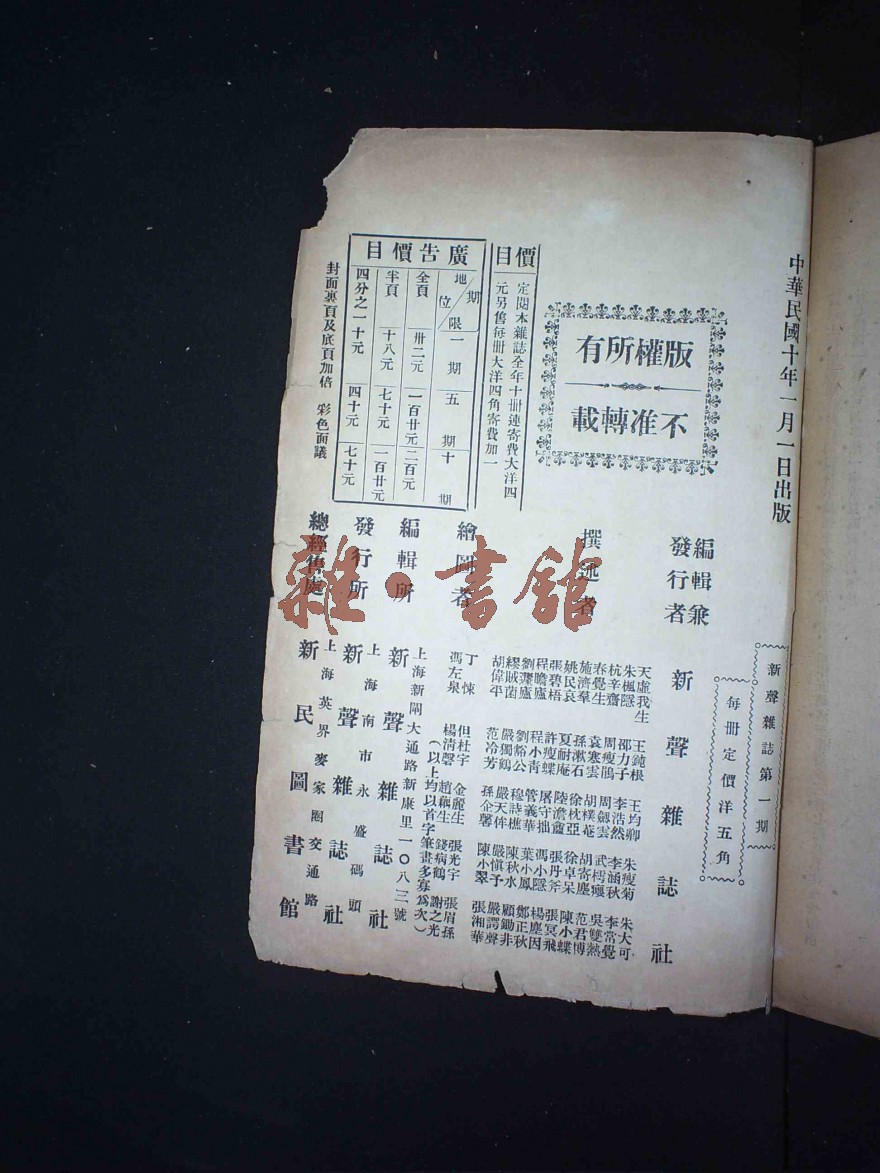 中華民國十年一月一日出版
新聲雜誌第一期
每册定價洋五角
版權所有
不准轉載
價目
定閱本雜誌全年十册連寄費大洋四
元另售每册大洋四角寄費加一
廣告價目
期限 地位 一期 五期 十期
全頁 卅二元 一百廿元 二百元
半頁 十八元 七十元 一百廿元
四分之一 十元 四十元 七十元
封面裏頁及底頁加倍 彩色面議
編輯兼發行者 新聲雜誌社
撰述者
天虛我生 王鈍根 王均卿 朱瘦菊 朱大可
朱楓隱 邵力子 李浩然 李涵秋 李常覺
杭辛齋 周瘦鵑 周劍雲 武樗癭 吳雙熱
春覺生 袁寒雲 胡樸菴 胡寄塵 范君博
施濟羣 孫漱石 徐枕亞 徐卓呆 陳小蝶
姚民哀 夏耐庵 陸澹盦 張丹斧 張冥飛
張碧梧 許瘦蝶 屠守拙 馮小隱 楊塵因
程瞻廬 程小青 管義華 葉小鳳 鄭正秋
劉豁公 穆詩樵 陳秋水 顧鋤非
繆賊菌 嚴獨鶴 嚴天侔 嚴慎予 嚴諤聲
胡偉平 范冷芳 孫企馨 陳小翠 張湘華
繪圖者
丁悚 但杜宇 金麗生 張光宇 張眉孫
馮左泉 楊清磬 趙藕生 錢病鶴 謝之光
(以上均以首字筆畫多寡爲次)
編輯所 上海新閘大通路新康里一〇八三號
新聲雜誌社
發行所 上海南市永盛碼頭
新聲雜誌社
總經售處 上海英界麥家圈交通路
新民圖書館
雜·書館